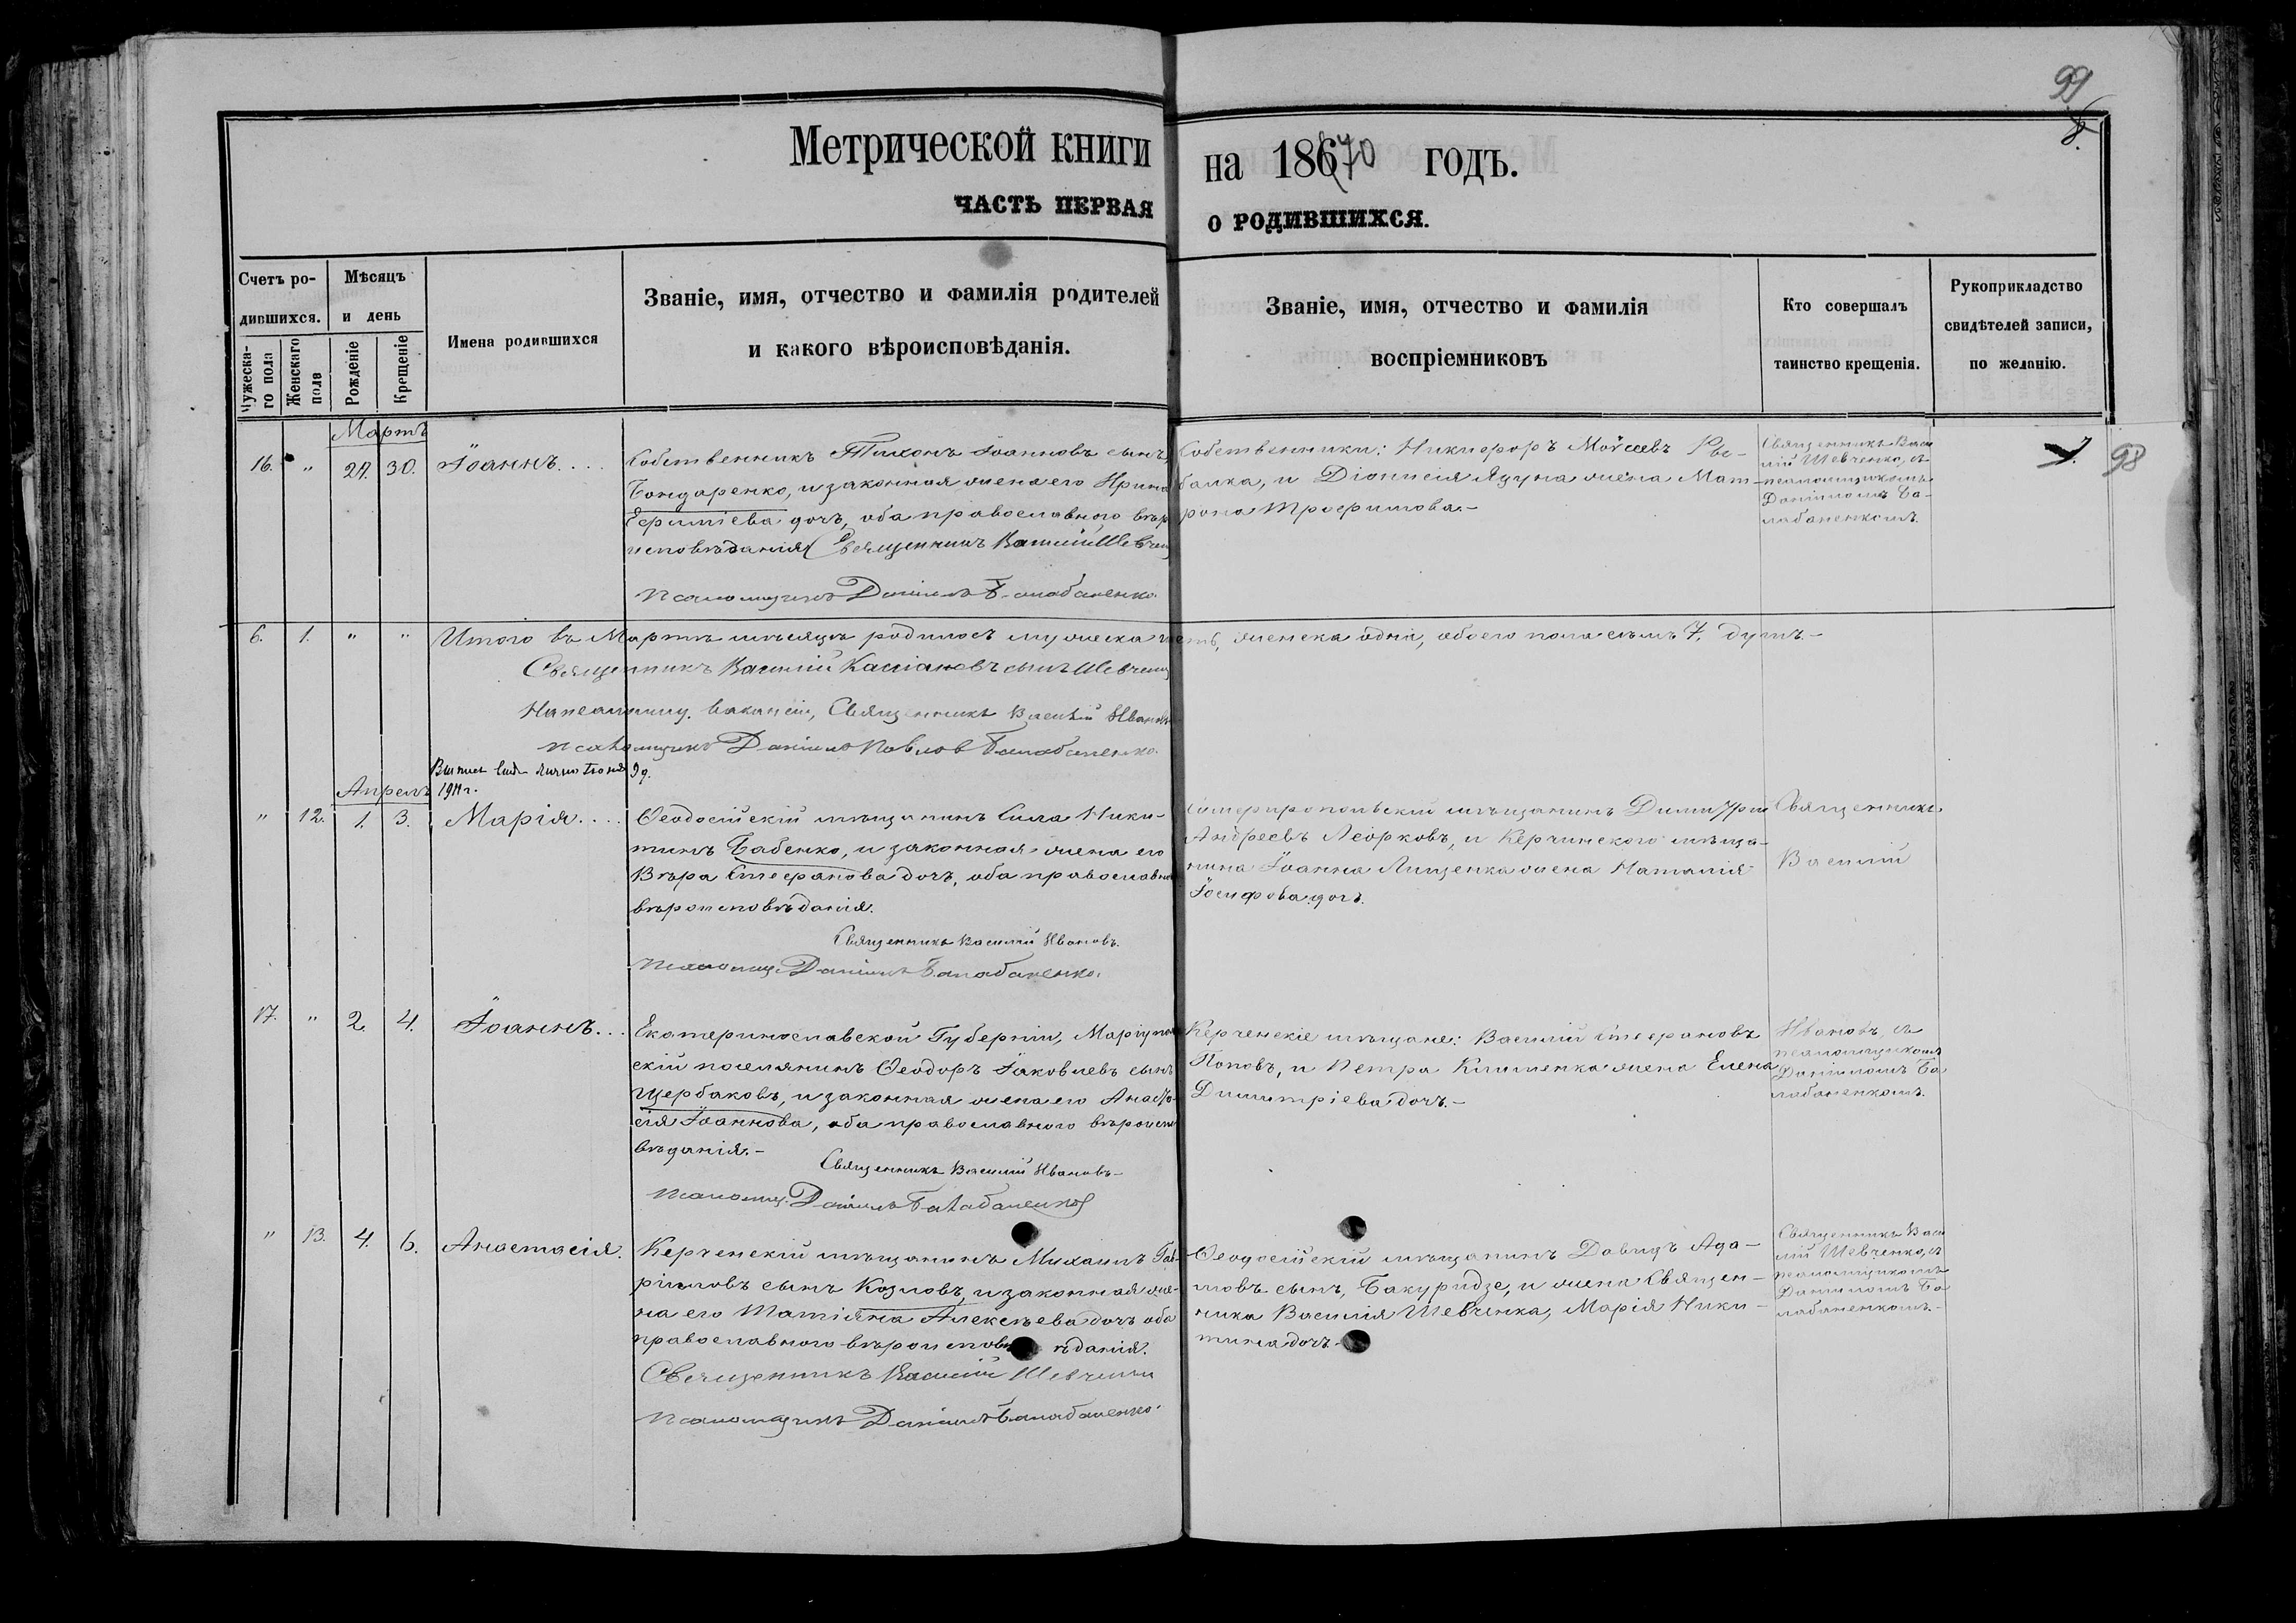 99
Метрической книги на 18670 годъ.
ЧАСТЬ ПЕРВАЯ О РОДИВШИХСЯ.
Счетъ родившихся.
Мужеска-го пола
Женскаго пола
Мѣсяцъ и день
Рожденіе
Крещеніе
Имена родившихся
Званіе, имя, отчество и фамилія родителей
и какого вѣроисповѣданія.
Званіе, имя, отчество и фамилія
воспріемниковъ
Кто совершалъ
таинство крещенія.
Рукоприкладство
свидѣтелей записи,
по желанію.
Мартъ
16. " 27. 30. Іоаннъ....
Собственникъ Тихонъ Іоанновъ сынъ,
Бондаренко, и законная жена его Ирина
Ефиміева дочь, оба православного вѣро
исповѣданія Священникъ Василій Шевченко
псаломщикъ Даніилъ Балабаненко.
Собственники: Никифоръ Моѵсеевъ Ры-
балка, и Діонисія Ядуна жена Мат-
рона Трофимова.-
Священникъ Васи
лій Шевченко, съ
псаломщикомъ
Даніиломъ Ба-
лабаненкомъ.
98
6. 1. " " Итого въ Мартѣ мѣсяцѣ родилось мужеска шесть, женска одна, обоего пола семь 7. душъ.-
Священникъ Василій Кассіановъ сынъ Шевченко
вакансіи, Священникъ Василій Ивановъ
псаломщикъ Даніилъ Павловъ Балабаненко.
1911 г.
Апрель
" 12. 1. 3. Марія....
Ѳеодосійскій мѣщанинъ Сила Ники-
тинъ Бабенко, и законная жена его
Вѣра Стефанова дочь, оба православнаго
вѣроисповѣданія.
Священникъ Василій Ивановъ.
псаломщ. Даніилъ Балабаненко.
Симферопольскій мѣщанинъ Димитрій
Андреевъ и Керчинского мѣща-
нина Іоанна Лищенка жена Наталія
Іосифова дочь.
Священникъ
Василій
17. " 2. 4. Іоаннъ...
Екатеринославской Губерніи, Маріупол
скій поселянинъ Ѳеодоръ Іаковлевъ сынъ
Щербаковъ, и законная жена его Анаста
сія Іоаннова, оба православного вѣроиспо
вѣданія.-
Священникъ Василій Ивановъ-
псаломщ. Даніилъ Балабаненко
Керченскіе мѣщане: Василій Стефановъ
Поповъ, и Петра Клименка жена Елена
Димитріева дочь.-
Ивановъ, съ
псаломщикомъ
Даніиломъ Ба
лабаненкомъ.
" 13. 4. 6. Анастасія.
Керченскій мѣщанинъ Михаилъ Гав-
ріиловъ сынъ Козловъ, и законная же-
на его Татіяна Алексѣева дочь оба
православного вѣроисповѣданія.
Священникъ Василій Шевченко
псаломщикъ Даніилъ Балабаненко.
Ѳеодосійскій мѣщанинъ Давидъ Ада-
мовъ сынъ, Бакуридзе, и жена Священ-
ника Василія Шевченка, Марія Ники-
тина дочь.-
Священникъ Васи
лій Шевченко, съ
псаломщикомъ
Даніиломъ Ба
лабаненкомъ.-